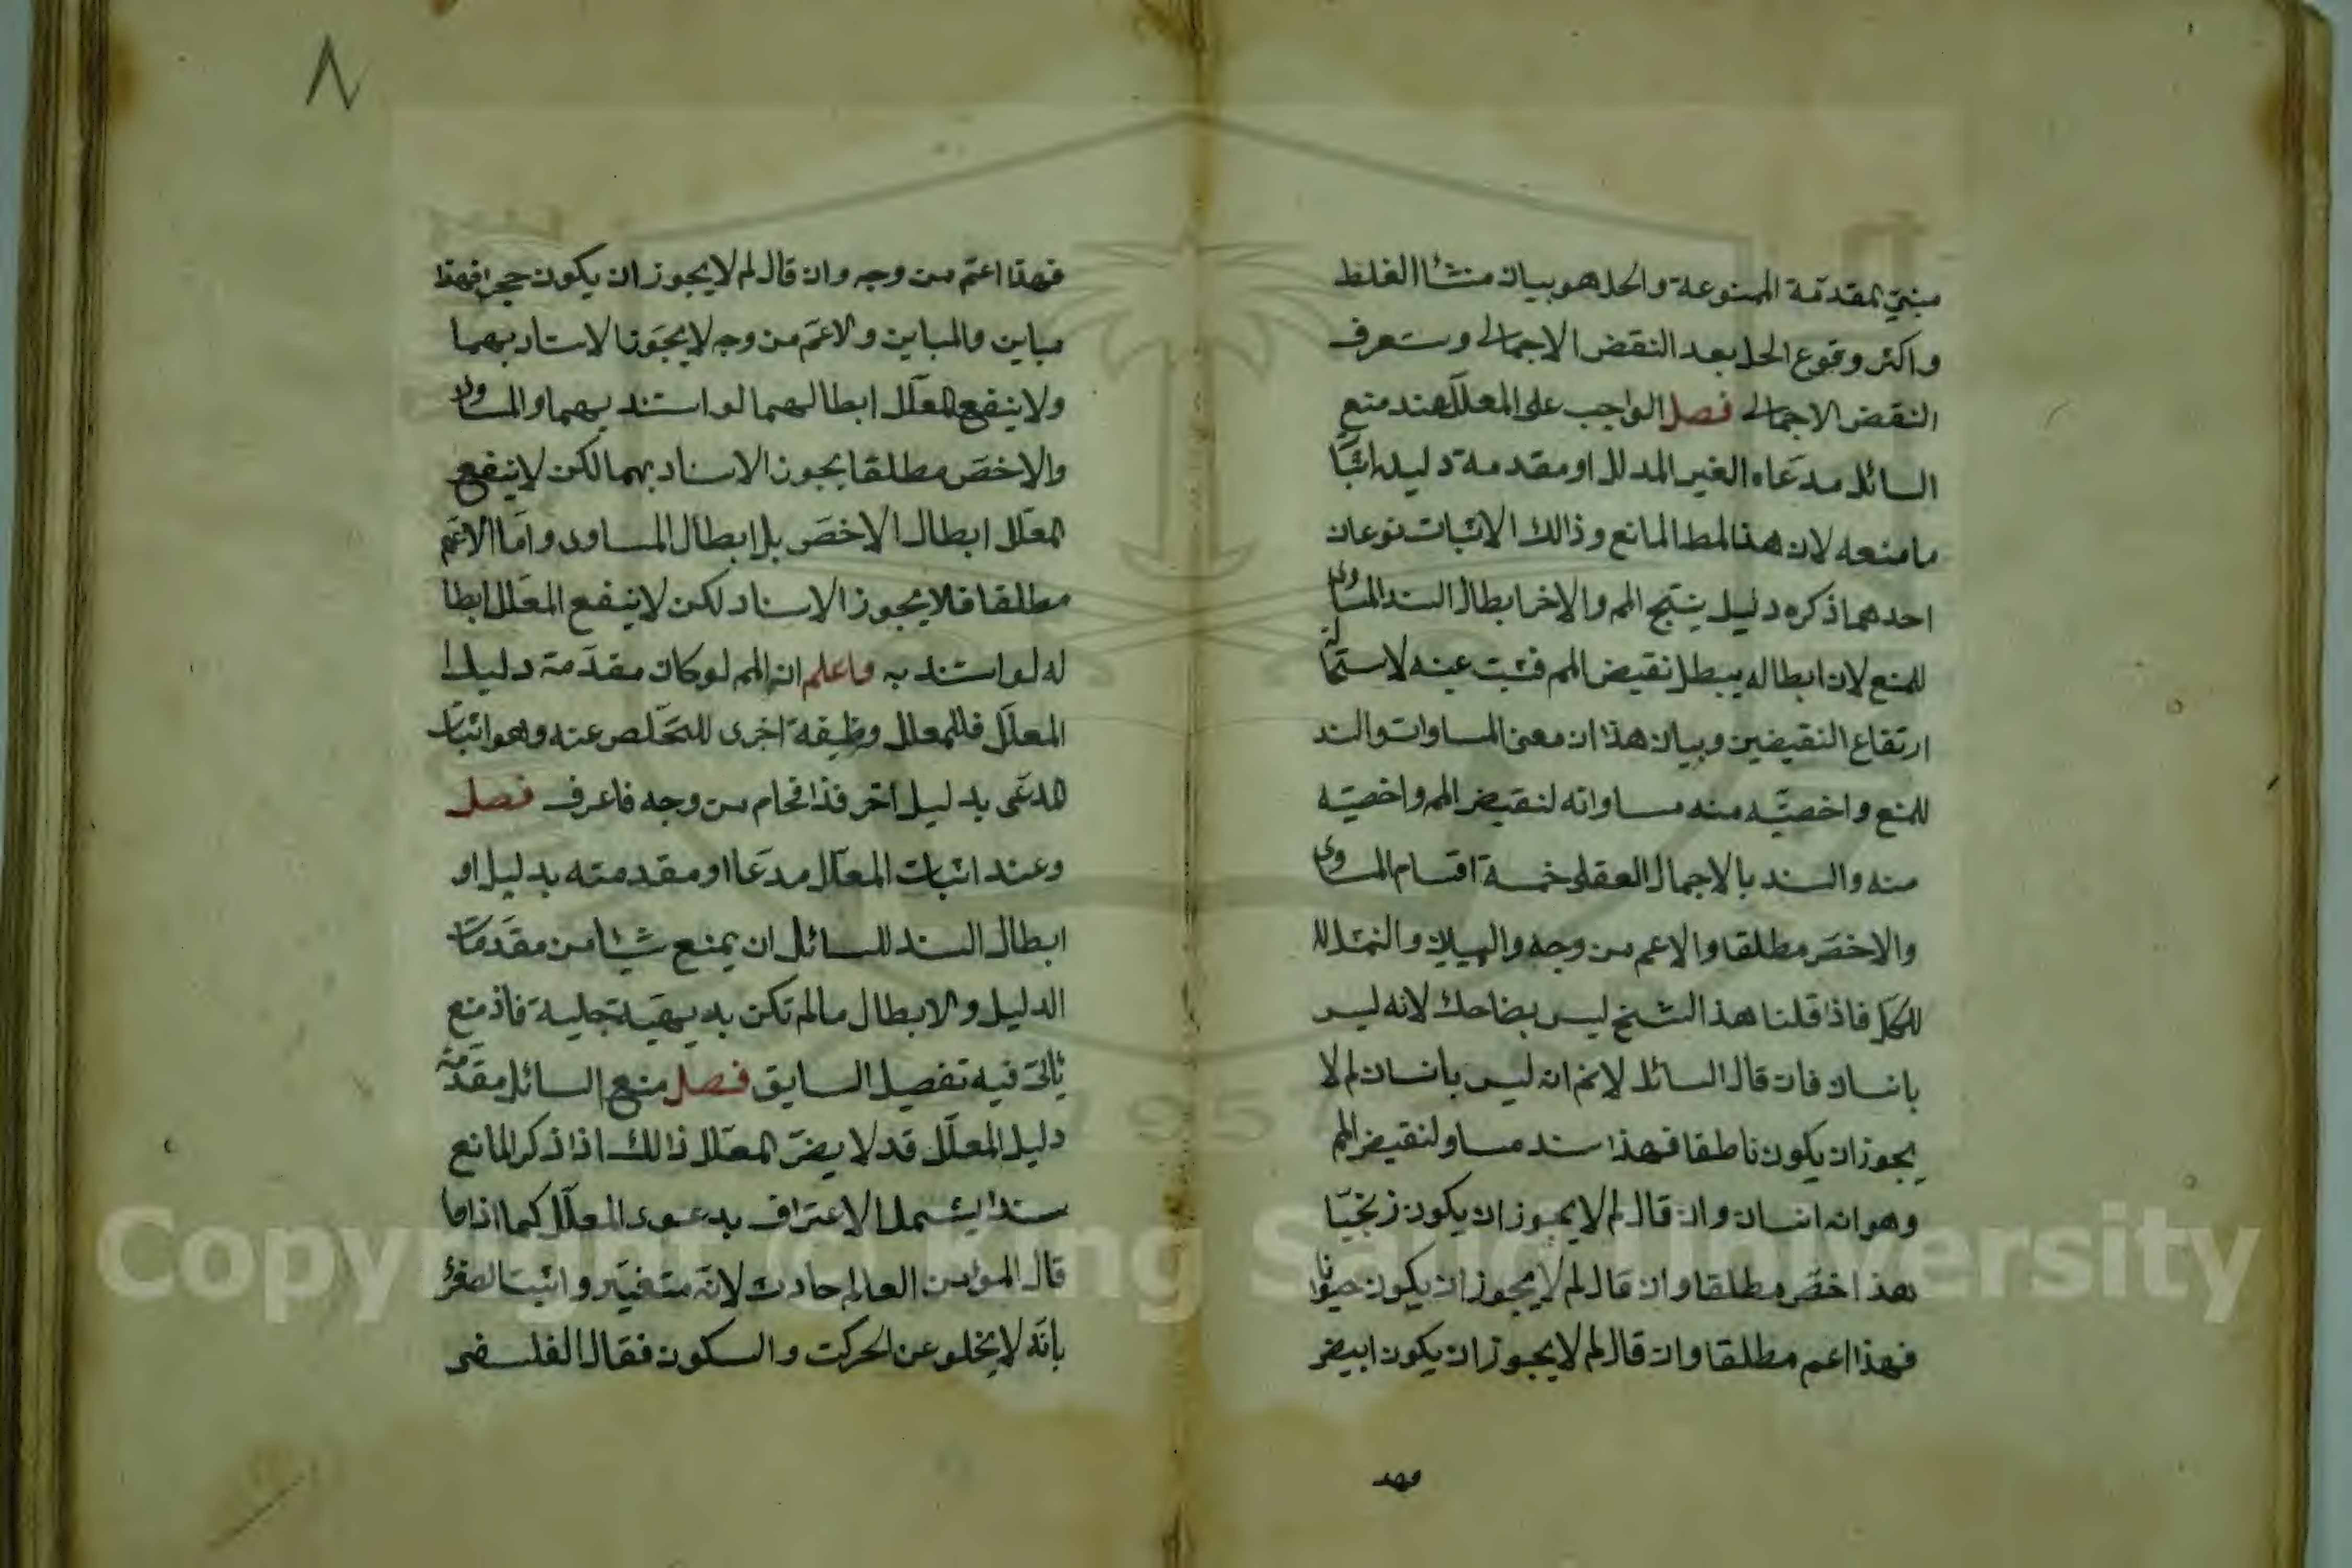 مبنيّ لمقدمة الممنوعة والحل هو بيان منشأ الغلط
واكثر وقوع الحل بعد النقض الاجمالى وستعرف
النقض الاجمالى فصل الواجب على المعلل عند منع
السائل مدعاه الغير المدلل او مقدمة دليله اثبا
ما منعه لان هذا لمط المانع وذالك الاثبات نوعان
احدهما ذكره دليل ينتج المم والاخر ابطال السند المساوى
للمنع لان ابطاله يبطل نقيض المم فثبت عينه لاستحالة
ارتفاع النقيضين وبيان هذا ان معنى المساوات والسند
للمنع واخصيّه منه مساواته لنقيض المم واخصيته
منه والسند بالاجمال العقلى خمسة اقسام المساوى
والاخصّ مطلقا والاعم من وجه والمباين والنمثل لك
للكل فاذا قلنا هذ الشبح ليس بضاحك لانه ليس
بانسان فان قال السائل لانم انه ليس بانسان لم لا
يجوز ان يكون ناطقا فهذا سند مساو لنقيض المم
وهو انه انسان وان قال لم لا يجوز ان يكون زنجيّا
هذ اخصّ مطلقا وان قال لم لا يجوز ان يكون حيوانا
فهذا اعم مطلقا وان قال لم لا يجوز ان يكون ابيض
فهد
٨
فهذا اعمّ من وجه وان قال لم لا يجوز ان يكون حجرا فهذا
مباين والمباين والاعمّ من وجه لا يجوّزنا الاسناد بهما
ولا ينفع لمعلّل ابطالهما لو استند بهما والمساوى
والاخصّ مطلقا يجوز الاسناد بهما لكن لا ينفع
لمعلّل ابطال الاخصّ بل ابطال المساوى وامّا الاعمّ
مطلقا فلا يجوز الاسناد لكن لا ينفع المعلّل ابطا
له لو استند به واعلم ان المم لو كان مقدّمة دليل ا
المعلّل فللمعلل وظيفة اخرى للتخلّص عنه وهو اثبات
لمدعّى بدليل آخر فذا فحام من وجه فاعرف فصل
وعند اثبات المعلّل مدعاا ومقدمته بدليل او
ابطال السند للسائل ان يمنع شيئا من مقدّمات
الدليل والابطال مالم تكن بديهيّة جلية فاذ منع
يأتى فيه تفصيل السابق فصل منع السائل مقدّمة
دليل المعلّل قد لا يضرّ لمعلّل ذالك اذا ذكر المانع
سندا يشمل الاعتراف بدعوى المعلّل كما اذا ما
قال المؤمن العالم حادث لانّه متغيّر واثبت الصغرى
بانّه لا يخلو عن الحركت والسكون فقال الفلسفى
Copyright © King Saud University
1957